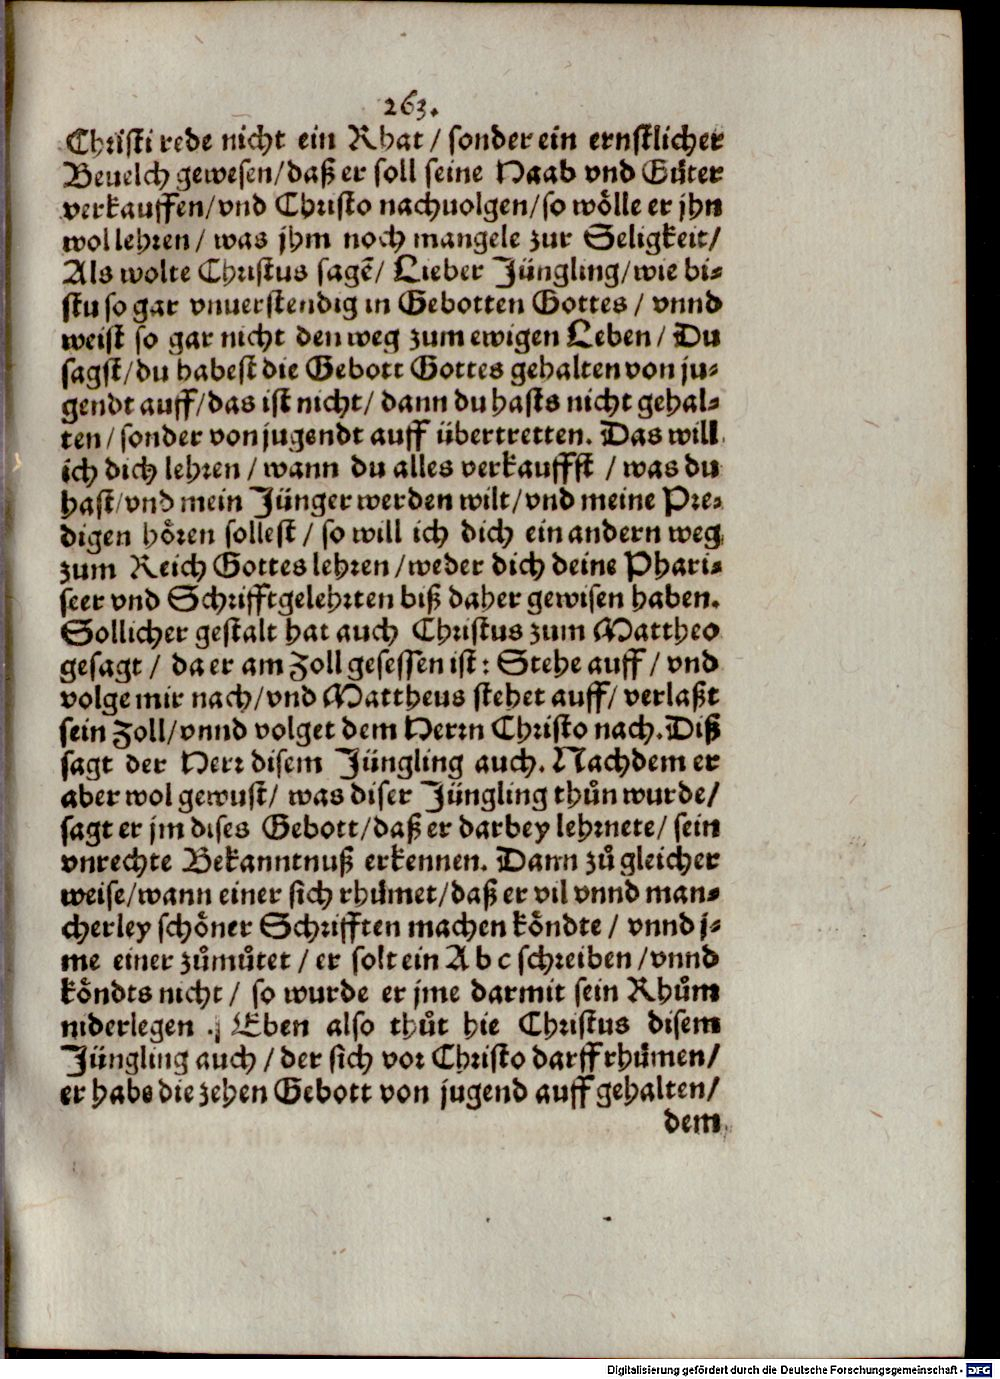 263.
Christi rede nicht ein Rhat / sonder ein ernstlicher
Beuelch gewesen / daß er soll seine Haab vnd Gůter
verkauffen / vnd Christo nachuolgen / so wölle er jhn
wol lehren / was jhm noch mangele zur Seligkeit /
Als wolte Christus sagẽ / Lieber Jüngling / wie bi-
stu so gar vnuerstendig in Gebotten Gottes / vnnd
weist so gar nicht den weg zum ewigen Leben / Du
sagst / du habest die Gebott Gottes gehalten von ju-
gendt auff / das ist nicht / dann du hasts nicht gehal-
ten / sonder von jugendt auff übertretten. Das will
ich dich lehren / wann du alles verkauffst / was du
hast / vnd mein Jünger werden wilt / vnd meine Pre-
digen hören sollest / so will ich dich ein andern weg
zum Reich Gottes lehren / weder dich deine Phari-
seer vnd Schrifftgelehrten biß daher gewisen haben.
Sollicher gestalt hat auch Christus zum Mattheo
gesagt / da er am Zoll gesessen ist: Stehe auff / vnd
volge mir nach / vnd Mattheus stehet auff / verlaßt
sein Zoll / vnnd volget dem Herrn Christo nach. Diß
sagt der Herr disem Jüngling auch. Nachdem er
aber wol gewust / was diser Jüngling thůn wurde /
sagt er jm dises Gebott / daß er darbey lehrnete / sein
vnrechte Bekanntnuß erkennen. Dann zů gleicher
weise / wann einer sich rhůmet / daß er vil vnnd man-
cherley schöner Schrifften machen köndte / vnnd j-
me einer zůmůtet / er solt ein A b c schreiben / vnnd
köndts nicht / so wurde er jme darmit sein Rhům
niderlegen. Eben also thůt hie Christus disem
Jüngling auch / der sich vor Christo darff rhůmen /
er habe die zehen Gebott von jugend auff gehalten /
dem
Digitalisierung gefördert durch die Deutsche Forschungsgemeinschaft - DFG